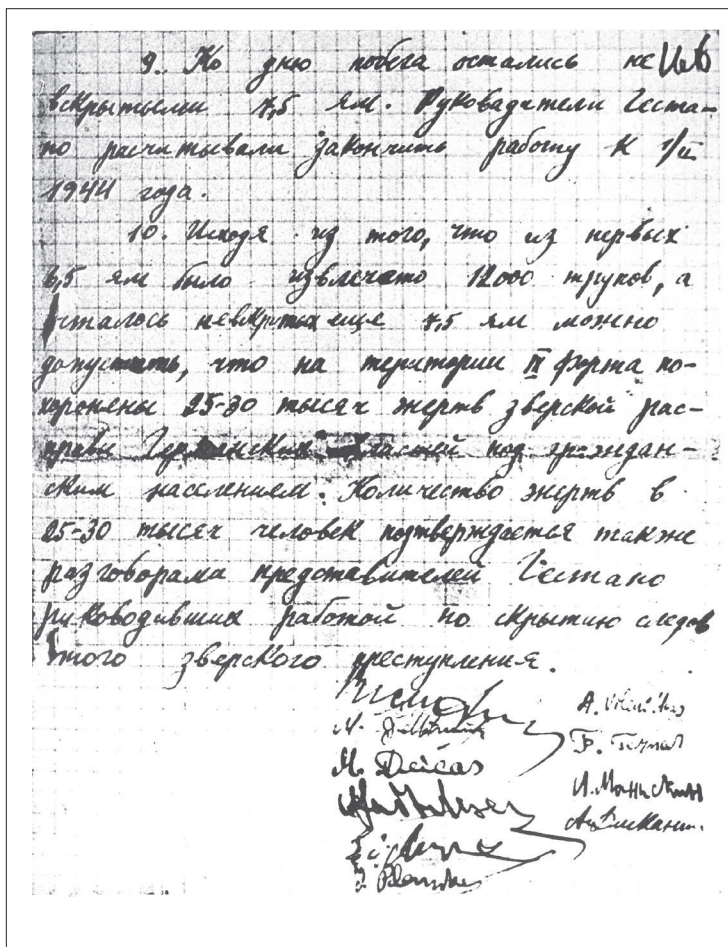 9. Ко дню побега остались не
вскрытыми 7,5 ям. Руководители Геста-
по расчитывали закончить работу к 1/II
1944 года.
10. Исходя из того, что из первых
6,5 ям было извлечено 12000 трупов, а
осталось невскрытых еще 7,5 ям можно
допустить, что на територии IX форта по-
хоронены 25-30 тысяч жертв зверской рас-
правы Германских властей над граждан-
ским населением. Количество жертв в
25-30 тысяч человек подтверждается также
разговорами представителей Гестапо
руководивших работой по скрытию следов
этого зверского преступления.
M. Deičas
И. Манискин